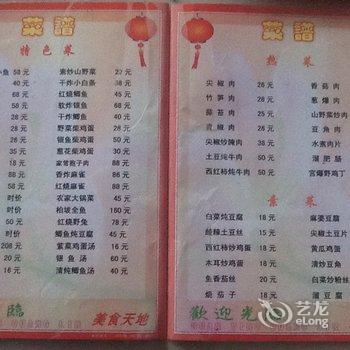 菜譜
特色菜
小鱼 58元 素炒山野菜 22元
40元 干炸小白条 38元
68元 红烧鲫鱼 45元
68元 软炸银鱼 45元
58元 干炸鲫鱼 40元
28元 野菜柴鸡蛋 30元
28元 银鱼柴鸡蛋 30元
35元 葱花柴鸡蛋 30元
18元 家常孢子肉 88元
88元 香炸麻雀 36元
60元 红烧麻雀 36元
时价 农家大锅菜 45元
时价 柏坡全鱼 100元
50元 红烧野兔 78元
时价 鲫鱼炖豆腐 45元
208元 紫菜鸡蛋汤 16元
20元 银鱼汤 60元
16元 清炖鲫鱼汤 45元
臨
GUANG LIN
美食天地
菜譜
熱菜
尖椒肉 26元 香菇肉
竹笋肉 28元 葱爆肉
蒜苔肉 26元 山野菜炒肉
青椒肉 26元 豆角肉
尖椒炒腌肉 36元 水煮肉片
土豆炖牛肉 50元 溜肥肠
西红柿炖牛肉 50元 宫爆野鸡丁
素菜
白菜炖豆腐 18元 麻婆豆腐
醋糗土豆丝 18元 尖椒土豆片
西红柿炒鸡蛋 18元 黄瓜鸡蛋
木耳炒鸡蛋 18元 清炒豆角
鱼香茄丝 20元 白菜炒豆
烧茄子 18元 溜豆腐
歡迎光
艺龙
eLong.com